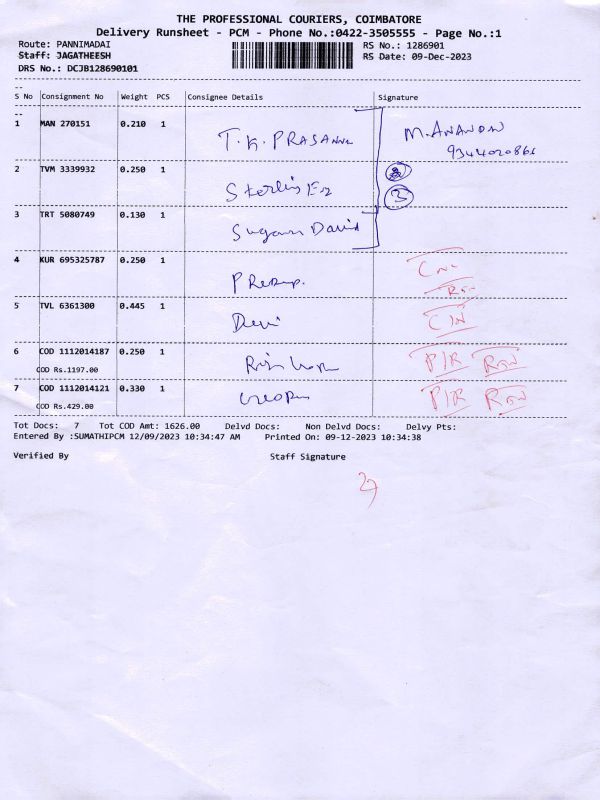 THE PROFESSIONAL COURIERS, COIMBATORE
Delivery Runsheet - PCM - Phone No.:0422-3505555 - Page No.:1
Route: PANNIMADAI RS No.: 1286901
Staff: JAGATHEESH RS Date: 09-Dec-2023
DRS No.: DCJB128690101
--
S No Consignment No Weight PCS Consignee Details Signature
--
1 MAN 270151 0.210 1 T.K. PRASANNA M. ANANDAN
2 TVM 3339932 0.250 1
3
3 TRT 5080749 0.130 1 David
4 KUR 695325787 0.250 1
5 TVL 6361300 0.445 1 Devi
6 COD 1112014187 0.250 1
COD Rs.1197.00
7 COD 1112014121 0.330 1
COD Rs.429.00
Tot Docs: 7 Tot COD Amt: 1626.00 Delvd Docs: Non Delvd Docs: Delvy Pts:
Entered By :SUMATHIPCM 12/09/2023 10:34:47 AM Printed On: 09-12-2023 10:34:38
Verified By Staff Signature